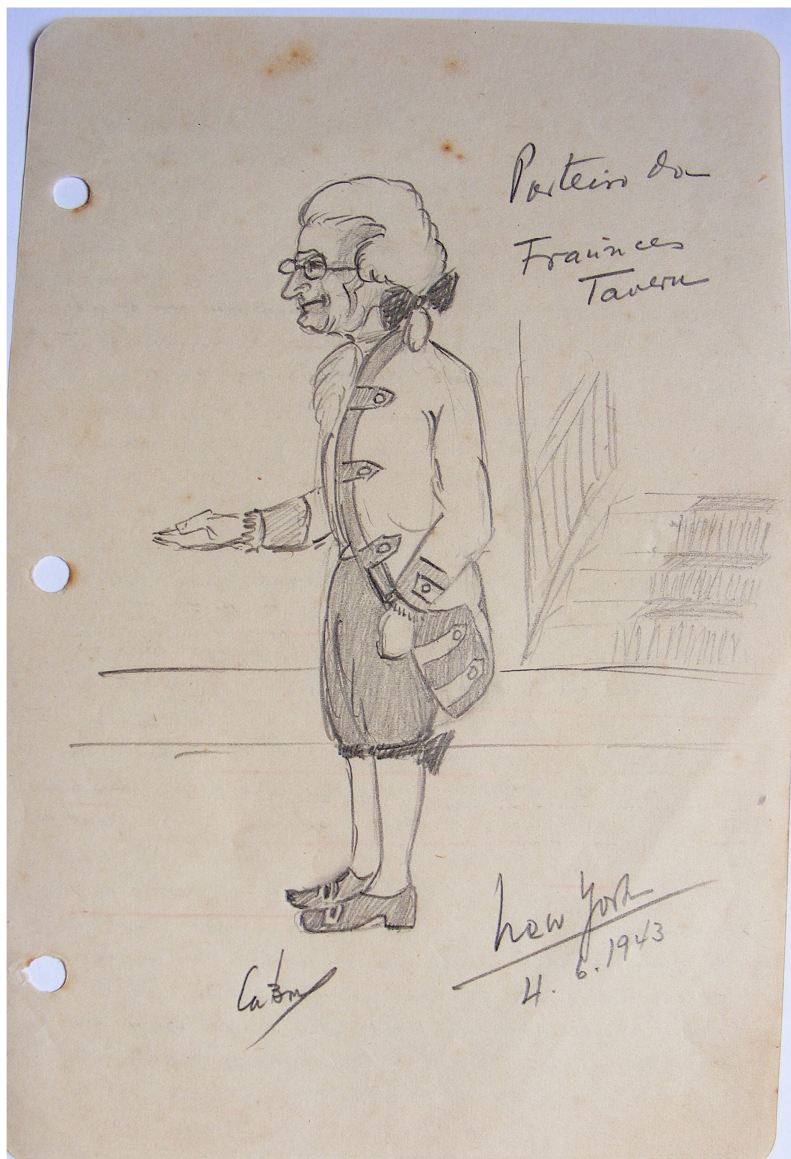 Porteiro da
Fraunces
Tavern
New York
4.6.1943